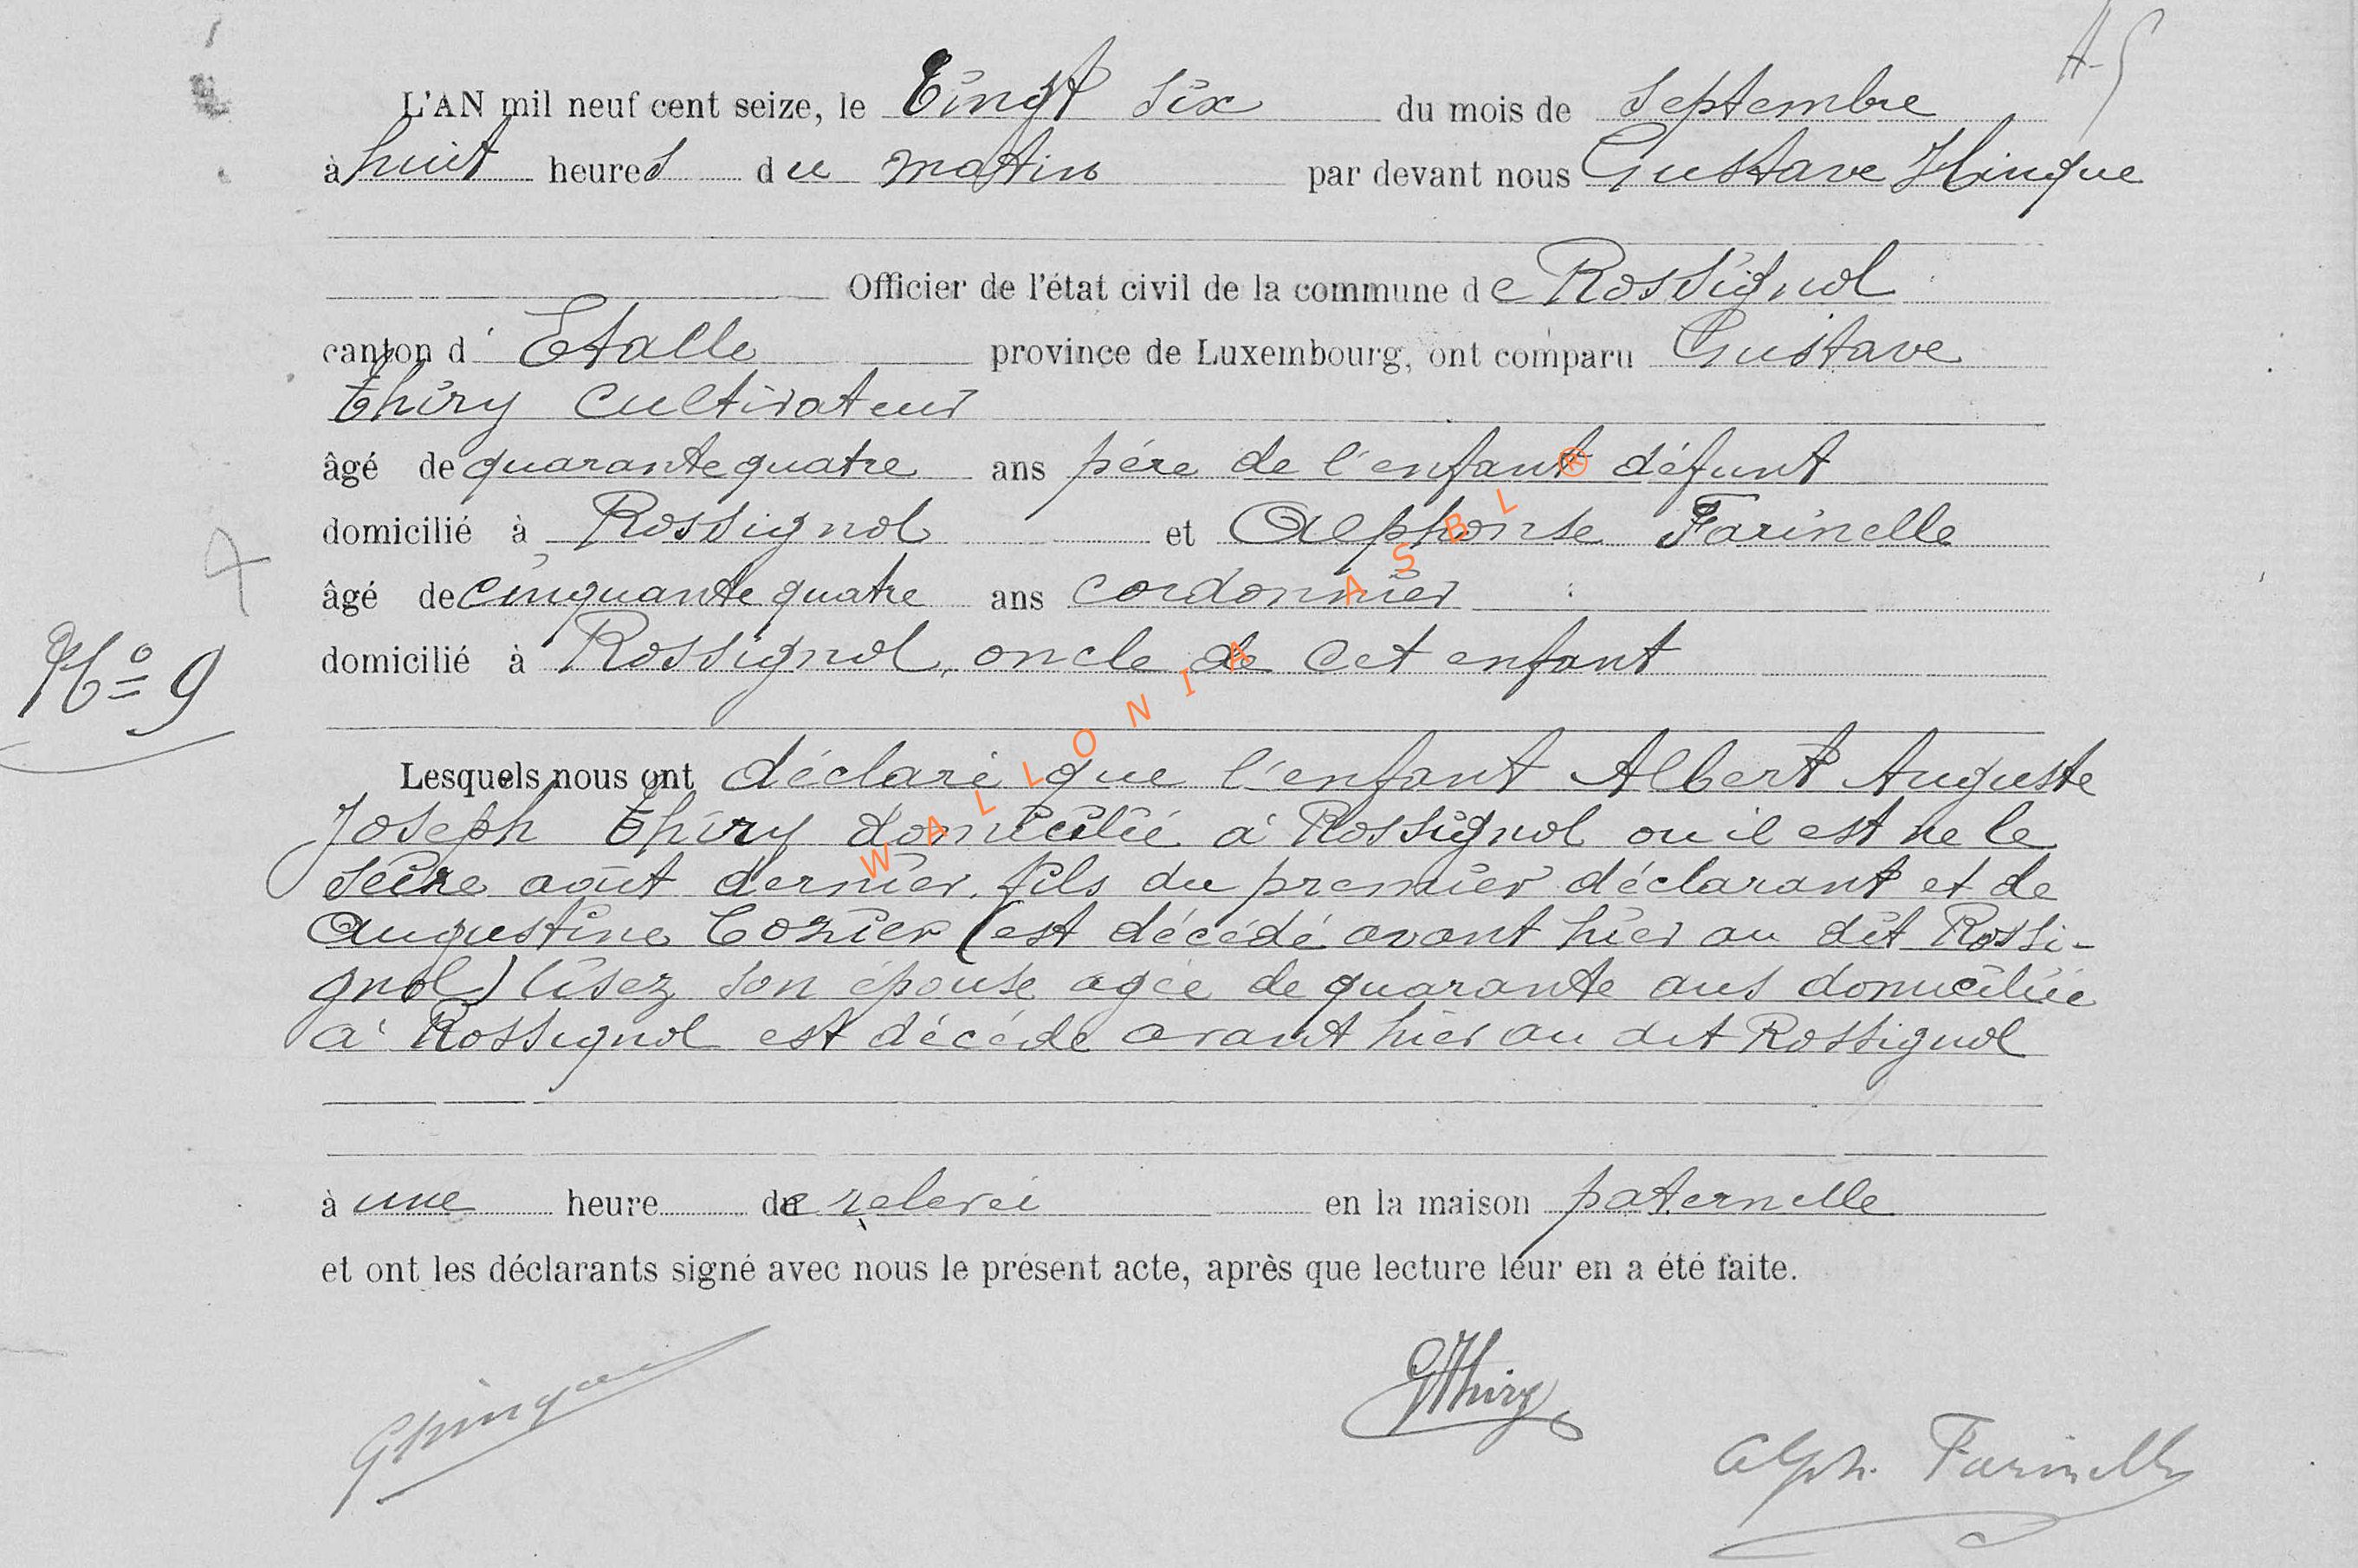 A-S
L'AN mil neuf cent seize, le Vingt Six du mois de Septembre
à huit heures du matin par devant nous Gustave Hinque
Officier de l'état civil de la commune de Rossignol
canton d' Etalle province de Luxembourg, ont comparu Gustave
Thiry Cultivateur
âgé de quarante quatre ans pére de l'enfant défunt
domicilié à Rossignol et Alphonse Farinelle
âgé de cinquante quatre ans cordonnier
domicilié à Rossignol, oncle de cet enfant
N° 9
Lesquels nous ont déclaré que l'enfant Albert Auguste
Joseph Thiry domicilié à Rossignol ou il est né le
seize août dernier, fils du premier déclarant et de
Augustine Cozier (est décédé avant hier au dit Rossi-
gnol) lisez son épouse agée de quarante ans domiciliée
à Rossignol est décédé avant hier au dit Rossignol
à une heure de relevée en la maison paternelle
et ont les déclarants signé avec nous le présent acte, après que lecture leur en a été faite.
GHinque
GThiry
Alph. Farinelle
WALLONIA ASBL ®